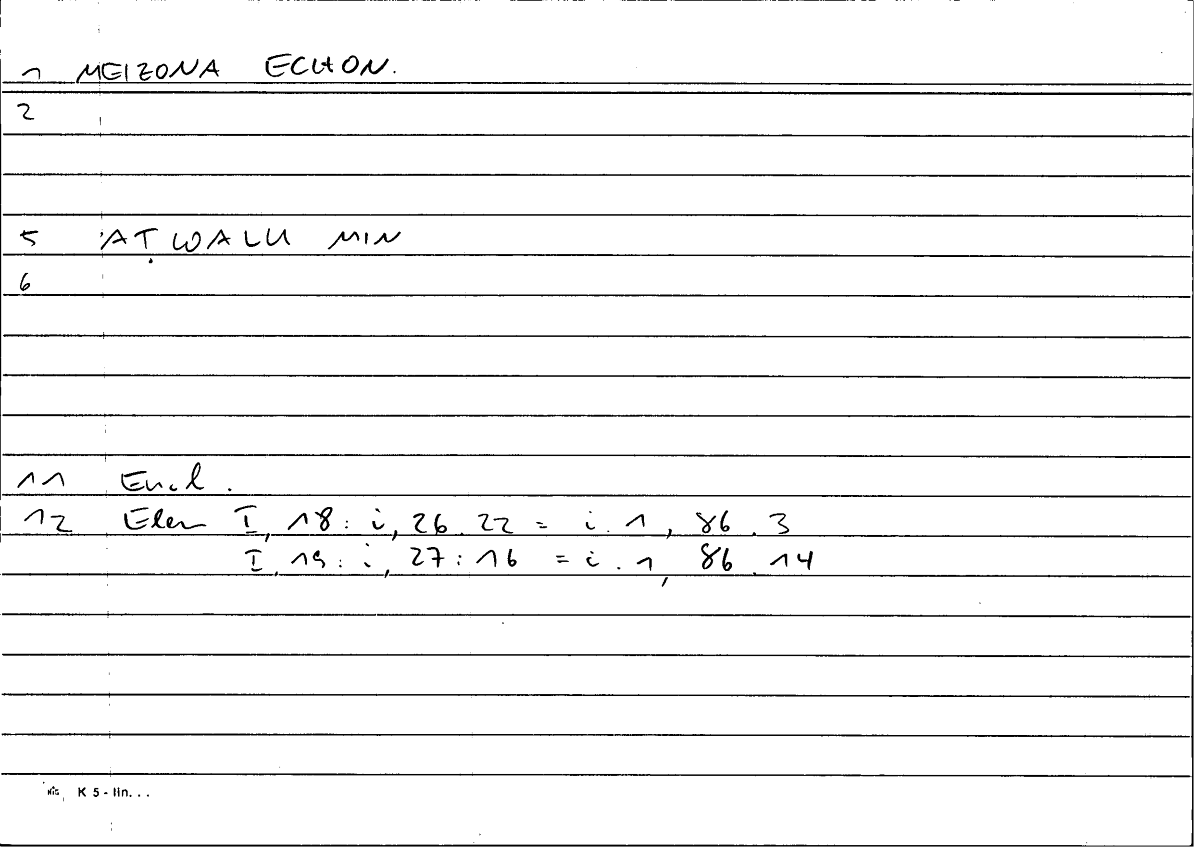 1 MEIZONA ECHON.
2
5 'AṬWALU MIN
6
11 Eucl.
12 Elem I, 18 : i, 26.22 = i.1, 86.3
I, 19 : i, 27:16 = i.1, 86.14
K 5 - lin. . .